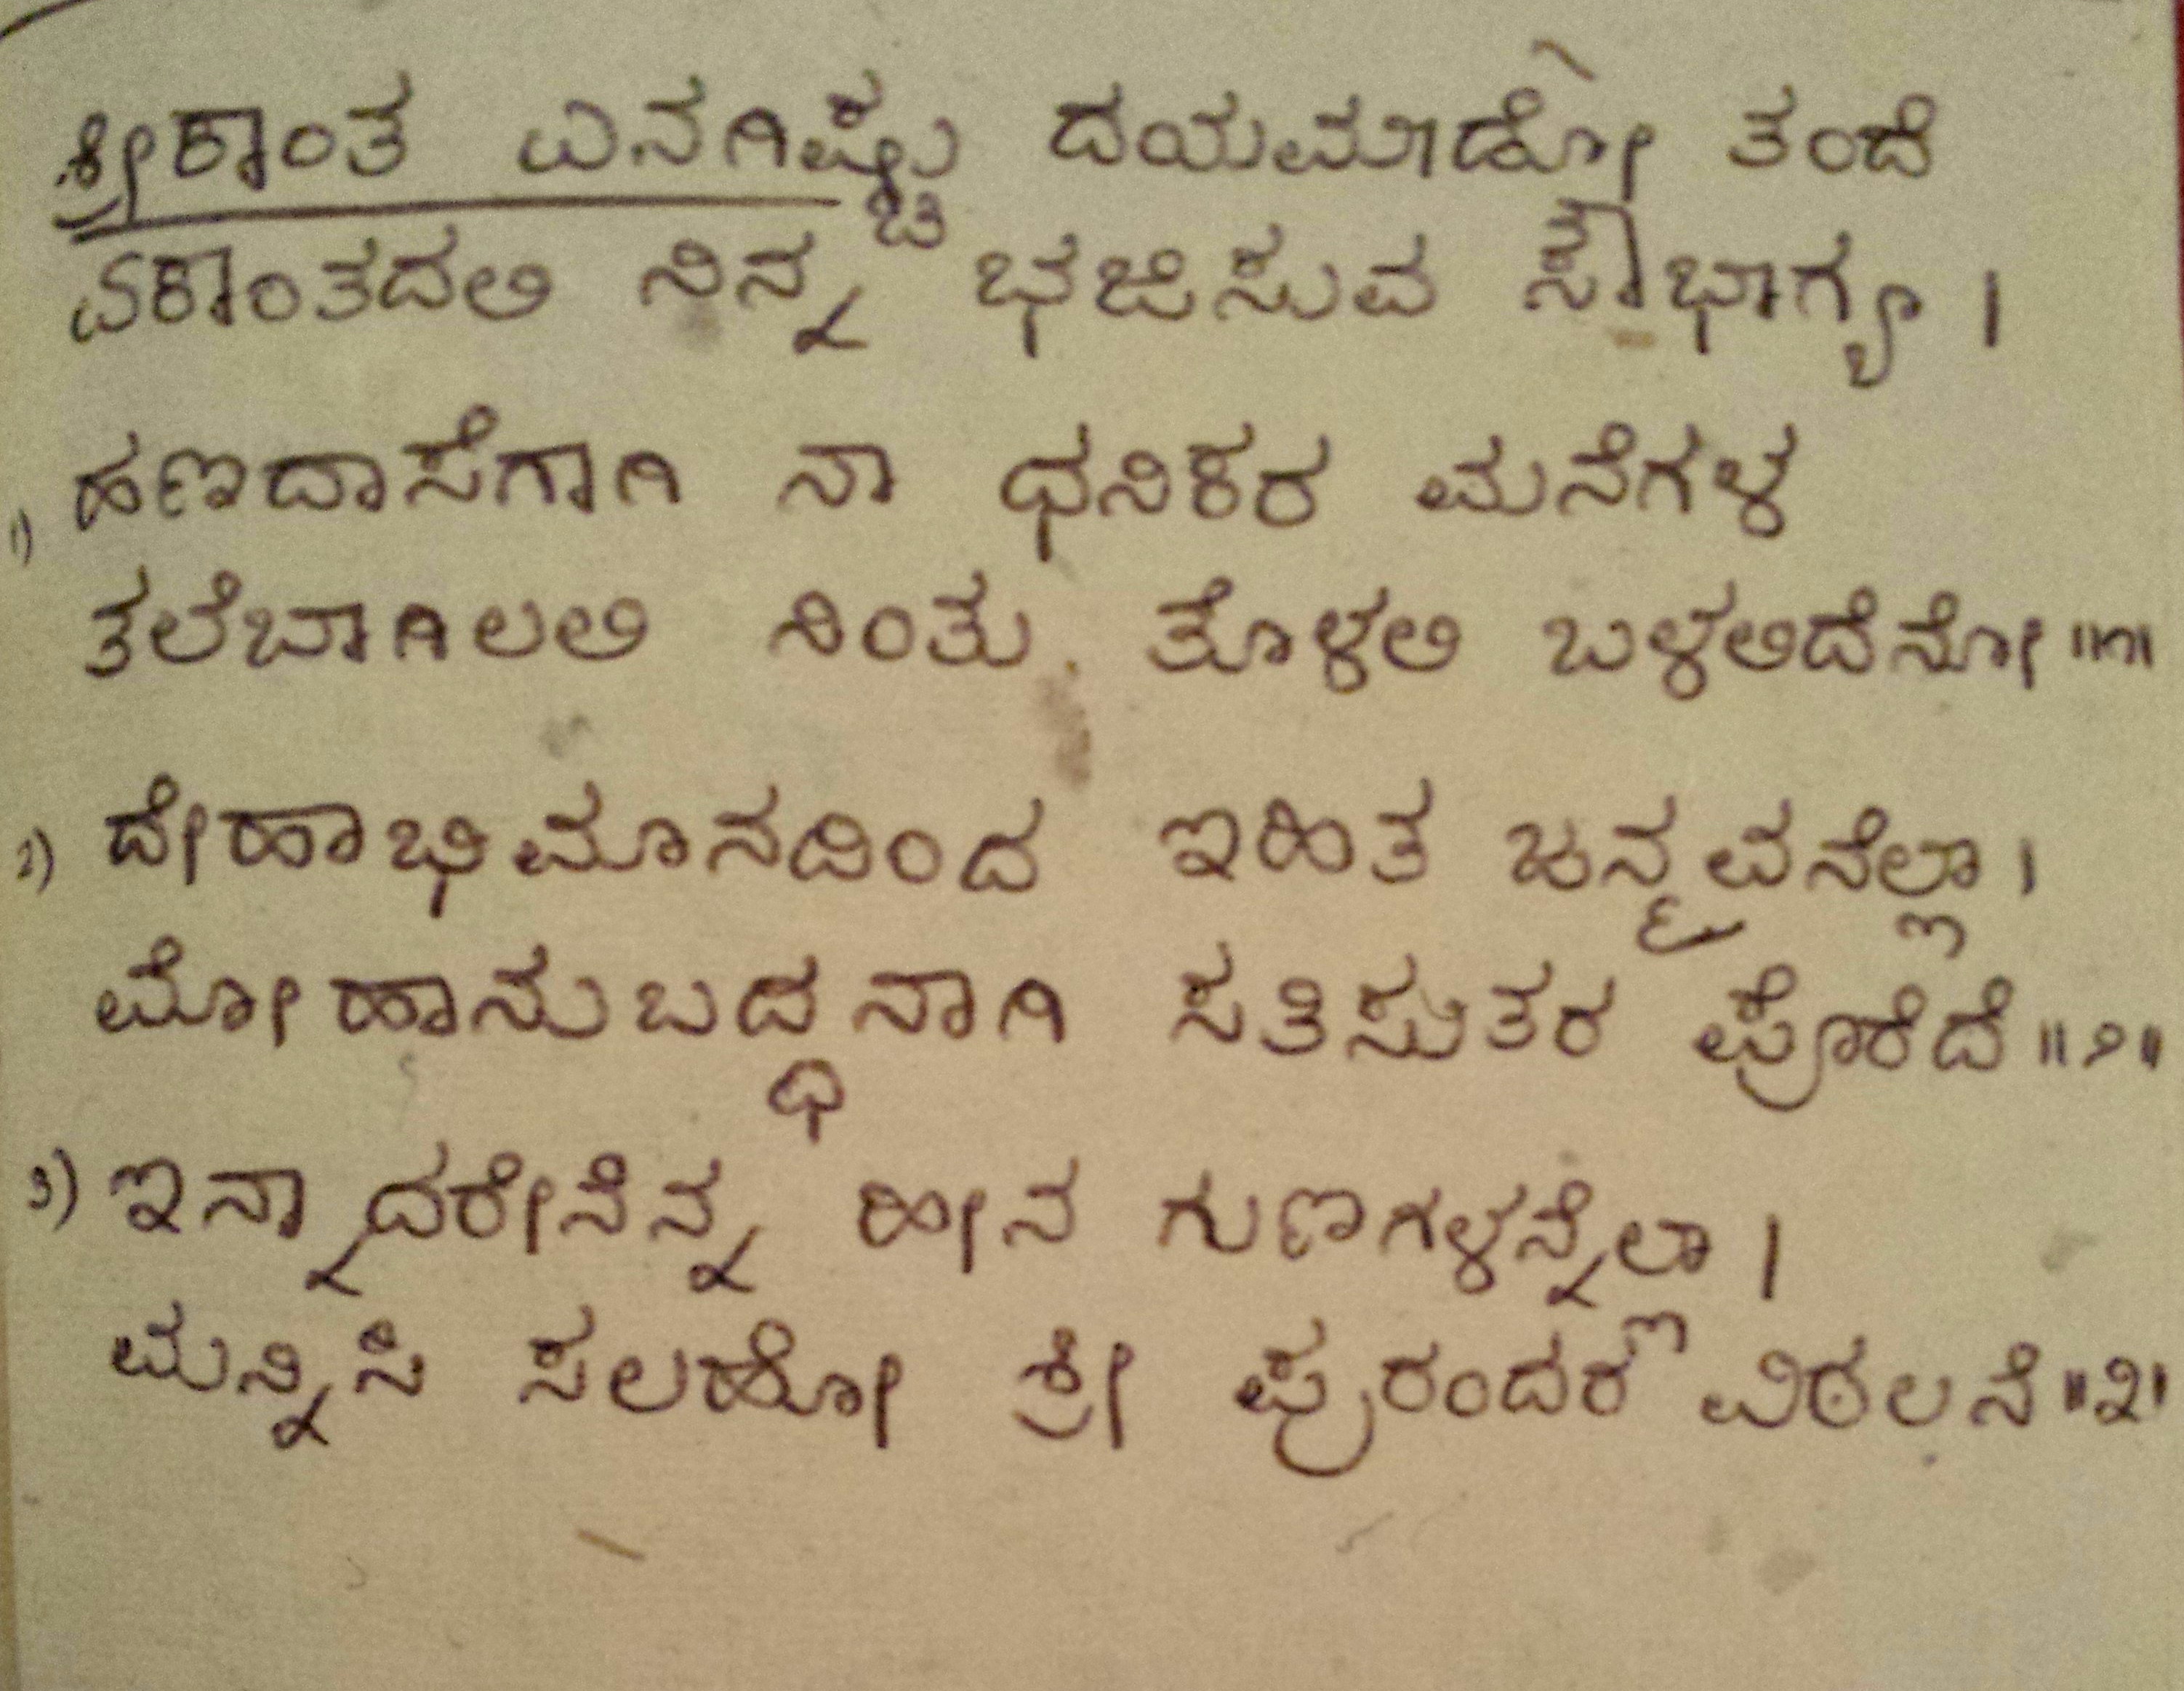 ಶ್ರೀಕಾಂತ ಎನಗಿಷ್ಟು ದಯಮಾಡೋ ತಂದೆ
ಏಕಾಂತದಲಿ ನಿನ್ನ ಭಜಿಸುವ ಸೌಭಾಗ್ಯ ।
1) ಹಣದಾಸೆಗಾಗಿ ನಾ ಧನಿಕರ ಮನೆಗಳ
ತಲೆಬಾಗಿಲಲಿ ನಿಂತು ತೊಳಲಿ ಬಳಲಿದೆನೋ ॥೧॥
2) ದೇಹಾಭಿಮಾನದಿಂದ ಇಹಿತ ಜನ್ಮವನೆಲ್ಲಾ ।
ಮೋಹಾನುಬದ್ಧನಾಗಿ ಸತಿಸುತರ ಪೊರೆದೆ ॥೨॥
3) ಇನ್ನಾದರೇನೆನ್ನ ಹೀನ ಗುಣಗಳನ್ನೆಲ್ಲಾ ।
ಮನ್ನಿಸಿ ಸಲಹೋ ಶ್ರೀ ಪುರಂದರ ವಿಠಲನೆ ॥೩॥